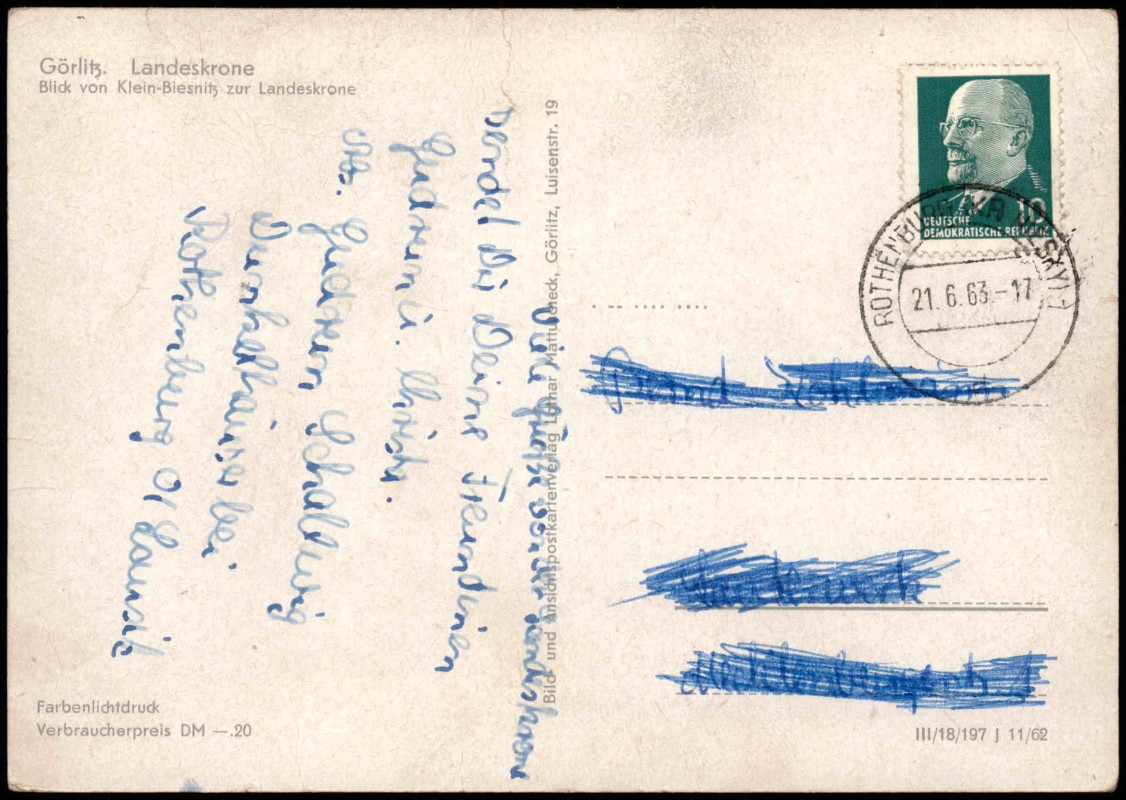 Görlitz. Landeskrone
Blick von Klein-Biesnitz zur Landeskrone
Viele Grüße von der Landskrone
sendet Dir Deine Freundinen
Gudrun u. Christa.
Abs. Gudrun Schallwig
Dunkelhäuser bei
Rothenburg O/Lausitz
Bild- und Ansichtspostkartenverlag Lothar Mattuscheck, Görlitz, Luisenstr. 19
10
DEUTSCHE
DEMOKRATISCHE REPUBLIK
ROTHENBURG
21.6.63.-17
Farbenlichtdruck
Verbraucherpreis DM —.20
III/18/197 J 11/62